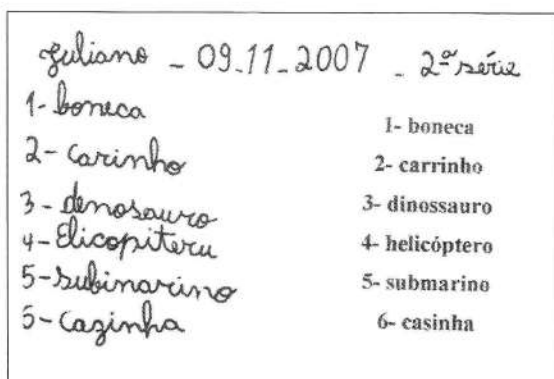 Juliano - 09-11-2007 - 2ª série
1- boneca
2- Carinho
3- denosauro
4- Elicopiteru
5- subinarino
5- Cazinha
1- boneca
2- carrinho
3- dinossauro
4- helicóptero
5- submarino
6- casinha